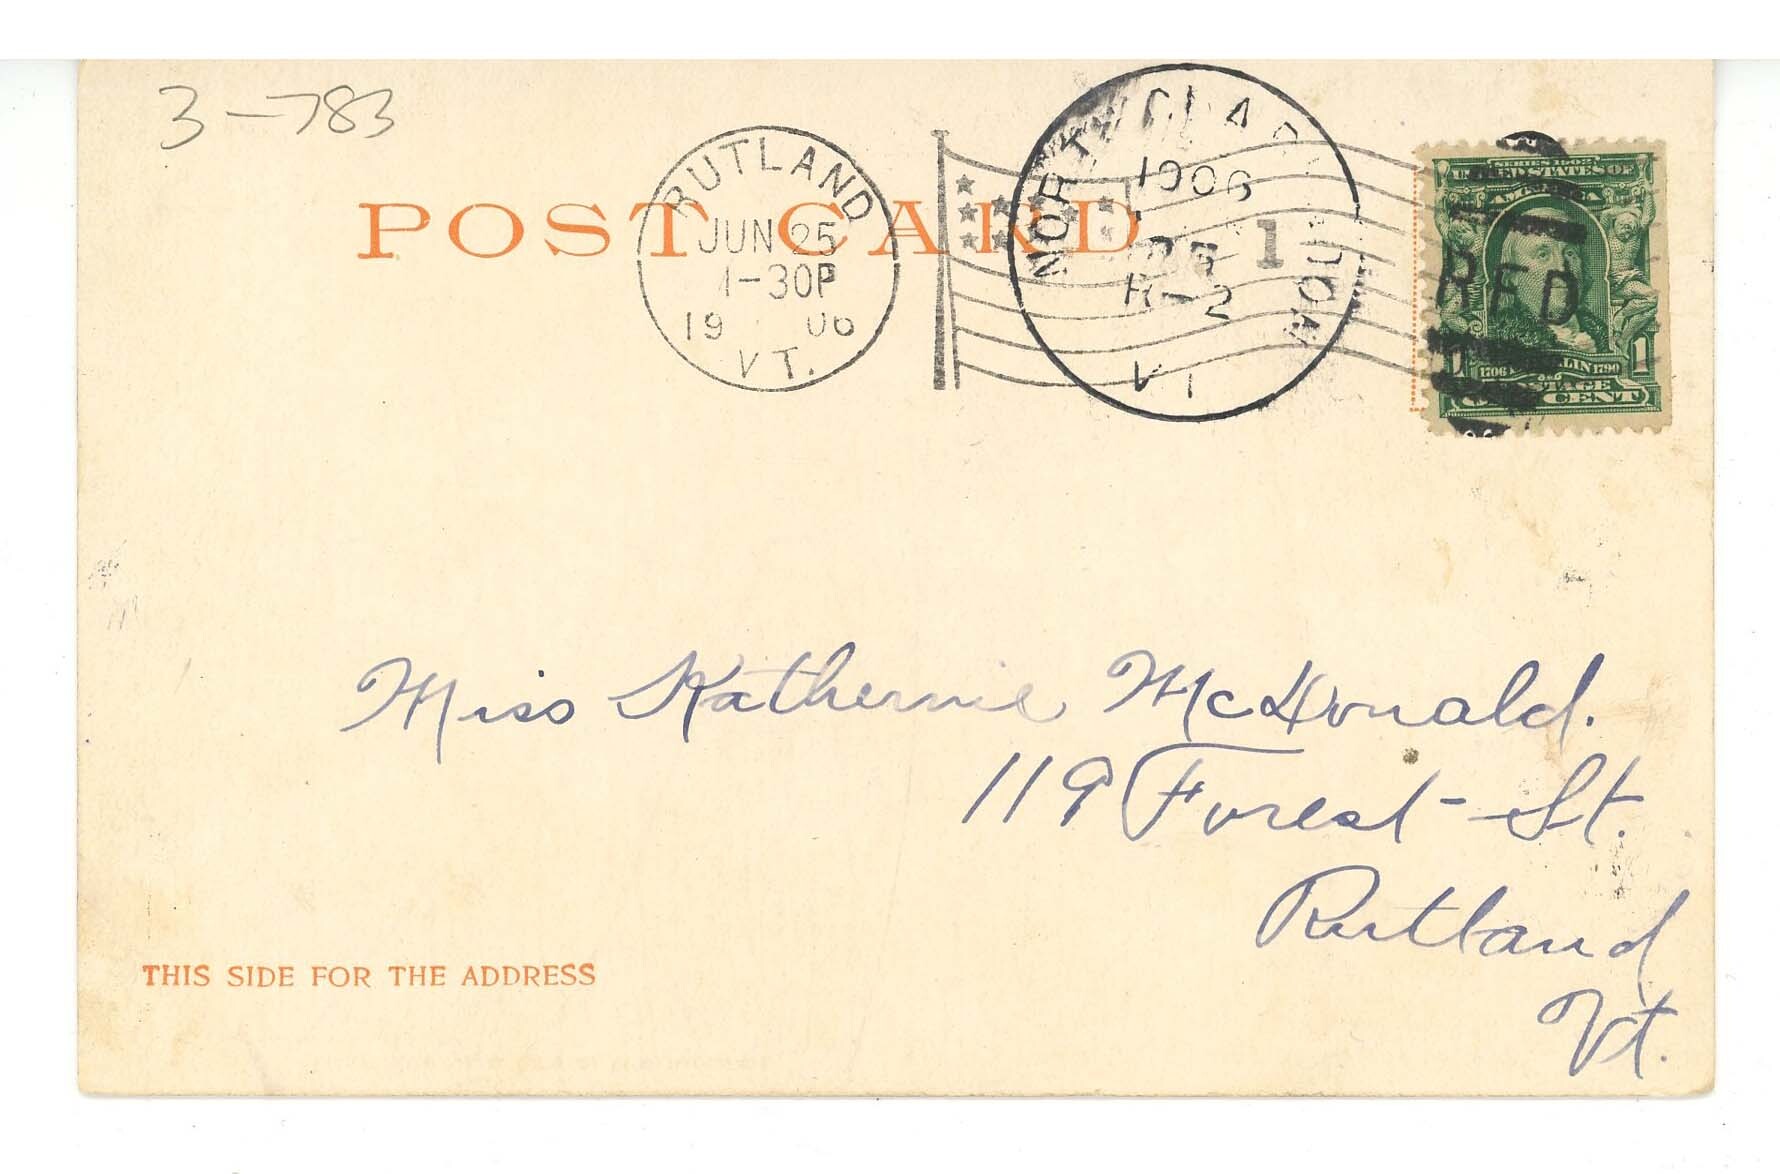 3-783
POST CARD
RUTLAND
JUN 25
1-30P
19 06
VT.
1
NORTH CLARENDON
1906
VT
RFD
SERIES 1902
UNITED STATES OF
AMERICA
1706 FRANKLIN 1790
1 POSTAGE 1
ONE CENT
Miss Katherine McDonald.
119 Forest St.
Rutland
Vt.
THIS SIDE FOR THE ADDRESS